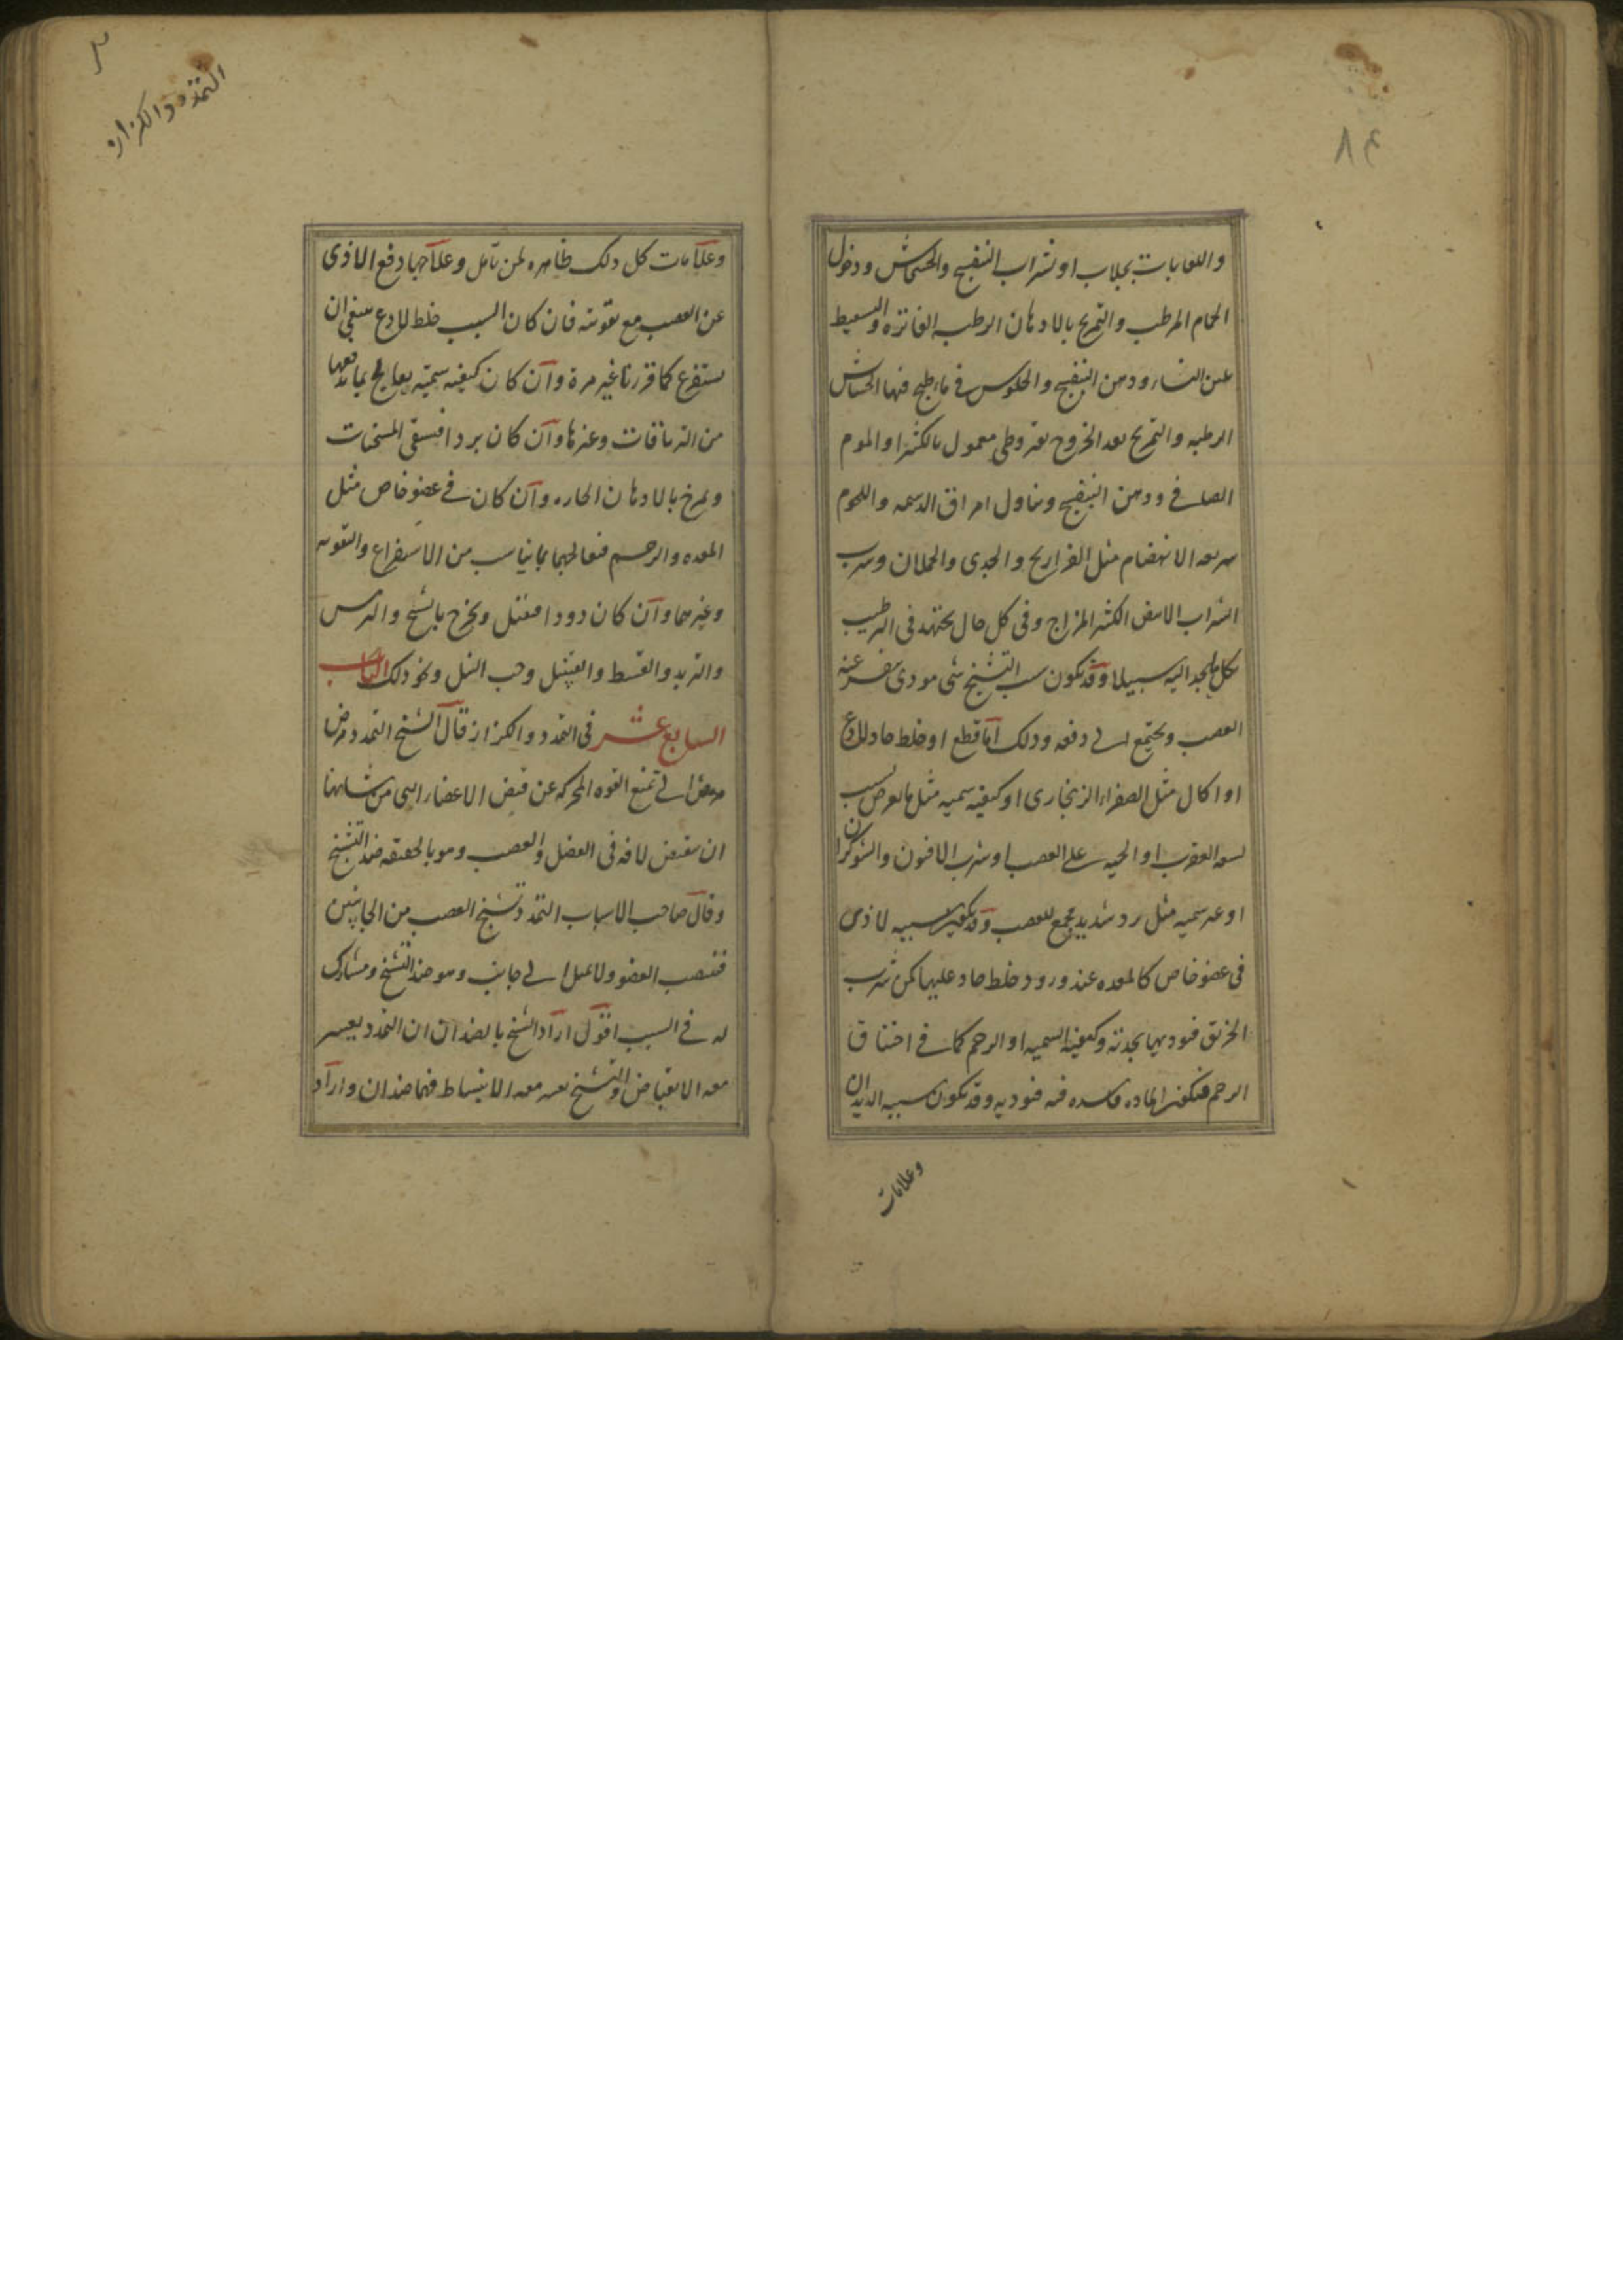 ٨٤
واللعابات بجلاب او شراب البنفسج والخشخاش ودخول
الحمام المرطب والتمريخ بالادهان الرطبه الفاتره والسعيط
بلبن النساء ودهن البنفسج والجلوس فى ماء طبخ فيها الحشايش
الرطبه والتمريخ بعد الخروج بقيروطى معمول بالكثيرا والموم
الصافى ودهن البنفسج وتناول امراق الدسمه واللحوم
سريعه الانهضام مثل الفراريج والجدى والحملان وشرب
الشراب الابيض الكثير المزاج وفى كل حال يجتهد فى الترطيب
بكل ما يجد اليه سبيلا وقد يكون سبب التشنج شى موذى ينفر عنه
العصب ويجتمع الى دفعه وذلك اما قطع او خلط حاد لذاع
او اكال مثل الصفراء الزنجارى او كيفيه سميه مثل ما يعرض بسبب
لسعه العقرب او الحيه على العصب او شرب الافيون والشوكران
او غير سميه مثل برد شديد يجمع العصب وقد يكون سببه لاذى
فى عضو خاص كالمعده عند ورود خلط حاد عليها كمن شرب
الخربق فيوديها بحدته وكيفيته السميه او الرحم كما فى اختناق
الرحم فيكون الماده فاسده فيه فيوذيه وقد يكون سببه الديدان
وعلامات
التمدد والكزاز
وعلامات كل ذلك ظاهره لمن تامل وعلاجها دفع الاذى
عن العصب مع تقويته فان كان السبب خلط لذاع ينبغى ان
يستفرغ كما قررنا غير مرة وان كان كيفيه سميته يعالج بما يدفعها
من الترياقات وغيرها وان كان بردا فيسقى المسخنات
ويمرخ بالادهان الحاره وان كان فى عضو خاص مثل
المعده والرحم فيعالجهما بما يناسب من الاستفراغ والتقويه
وغيرهما وان كان دودا فيقتل ويخرج بالشيح والترمس
والتربد والقسط والقنبيل وحب النيل ونحو ذلك الباب
السابع عشر فى التمدد والكزاز قال الشيخ التمدد مرض
مرض الى تمنع القوه المحركه عن قبض الاعضاء التى من شانها
ان تنقبض لافه فى العضل والعصب وهو بالحقيقه ضد التشنج
وقال صاحب الاسباب التمدد تشنج العصب من الجانبين
فينتصب العضو ولا يميل الى جانب وهو ضد التشنج ومشارك
له فى السبب اقول اراد الشيخ بالضدان ان التمدد يعسر
معه الانقباض والتشنج يعسر معه الانبساط فهما ضدان واراد